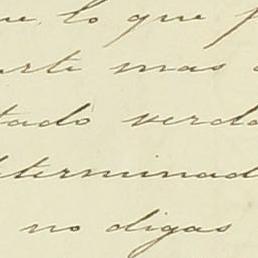 que lo que p
arte mas
tado verda
determinad
no digas